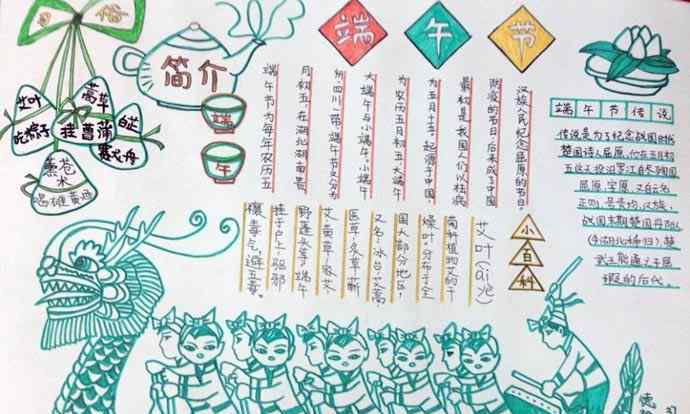 端午节
俗
艾叶
吃粽子
蒿草
挂菖蒲
白芷
赛龙舟
熏苍
术
喝雄黄酒
简介
端
午
端午节为每年农历五
月初五,在湖北湖南、贵
州、四川一带端午节又分为
大端午与小端午。小端午
为农历五月初五大端午
为五月十五。起源于中国,
最初是我国人们以祛病
防疫的节日,后来成了中国
汉族人民纪念屈原的节日。
小百科
艾叶(ài yè)
菊科植物艾的干
燥叶,分布于全
国大部分地区,
又名:冰台,艾蒿,
医草,灸草,蕲
艾黄草、家艾
野莲头等,端午
挂于户上,驱邪
禳毒气,避五毒。
端午节传说
传说是为了纪念战国时代
楚国诗人屈原,他在五月初
五这天投汨罗江自尽殉国
屈原,字原,又自云名
正则,号灵均,汉族,
战国末期楚国丹阳
(今湖北秭归),楚
武王熊通之子屈
瑕的后代。